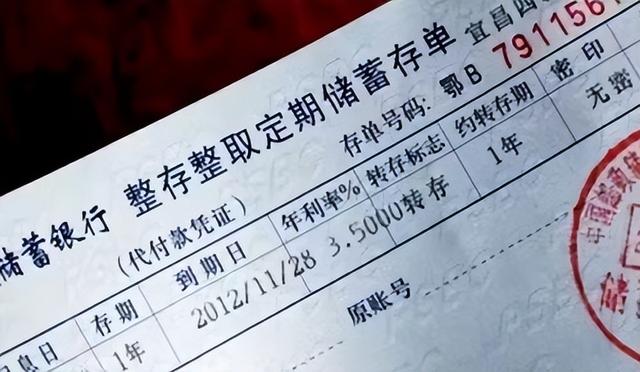 储蓄银行 整存整取定期储蓄存单 宜昌四
(代付款凭证) 存单号码: 鄂B 7911561
息日 存期 到期日 年利率% 转存标志 约转存期 密印
1年 2012/11/28 3.5000 转存 1年 无密
原账号
中国邮政储